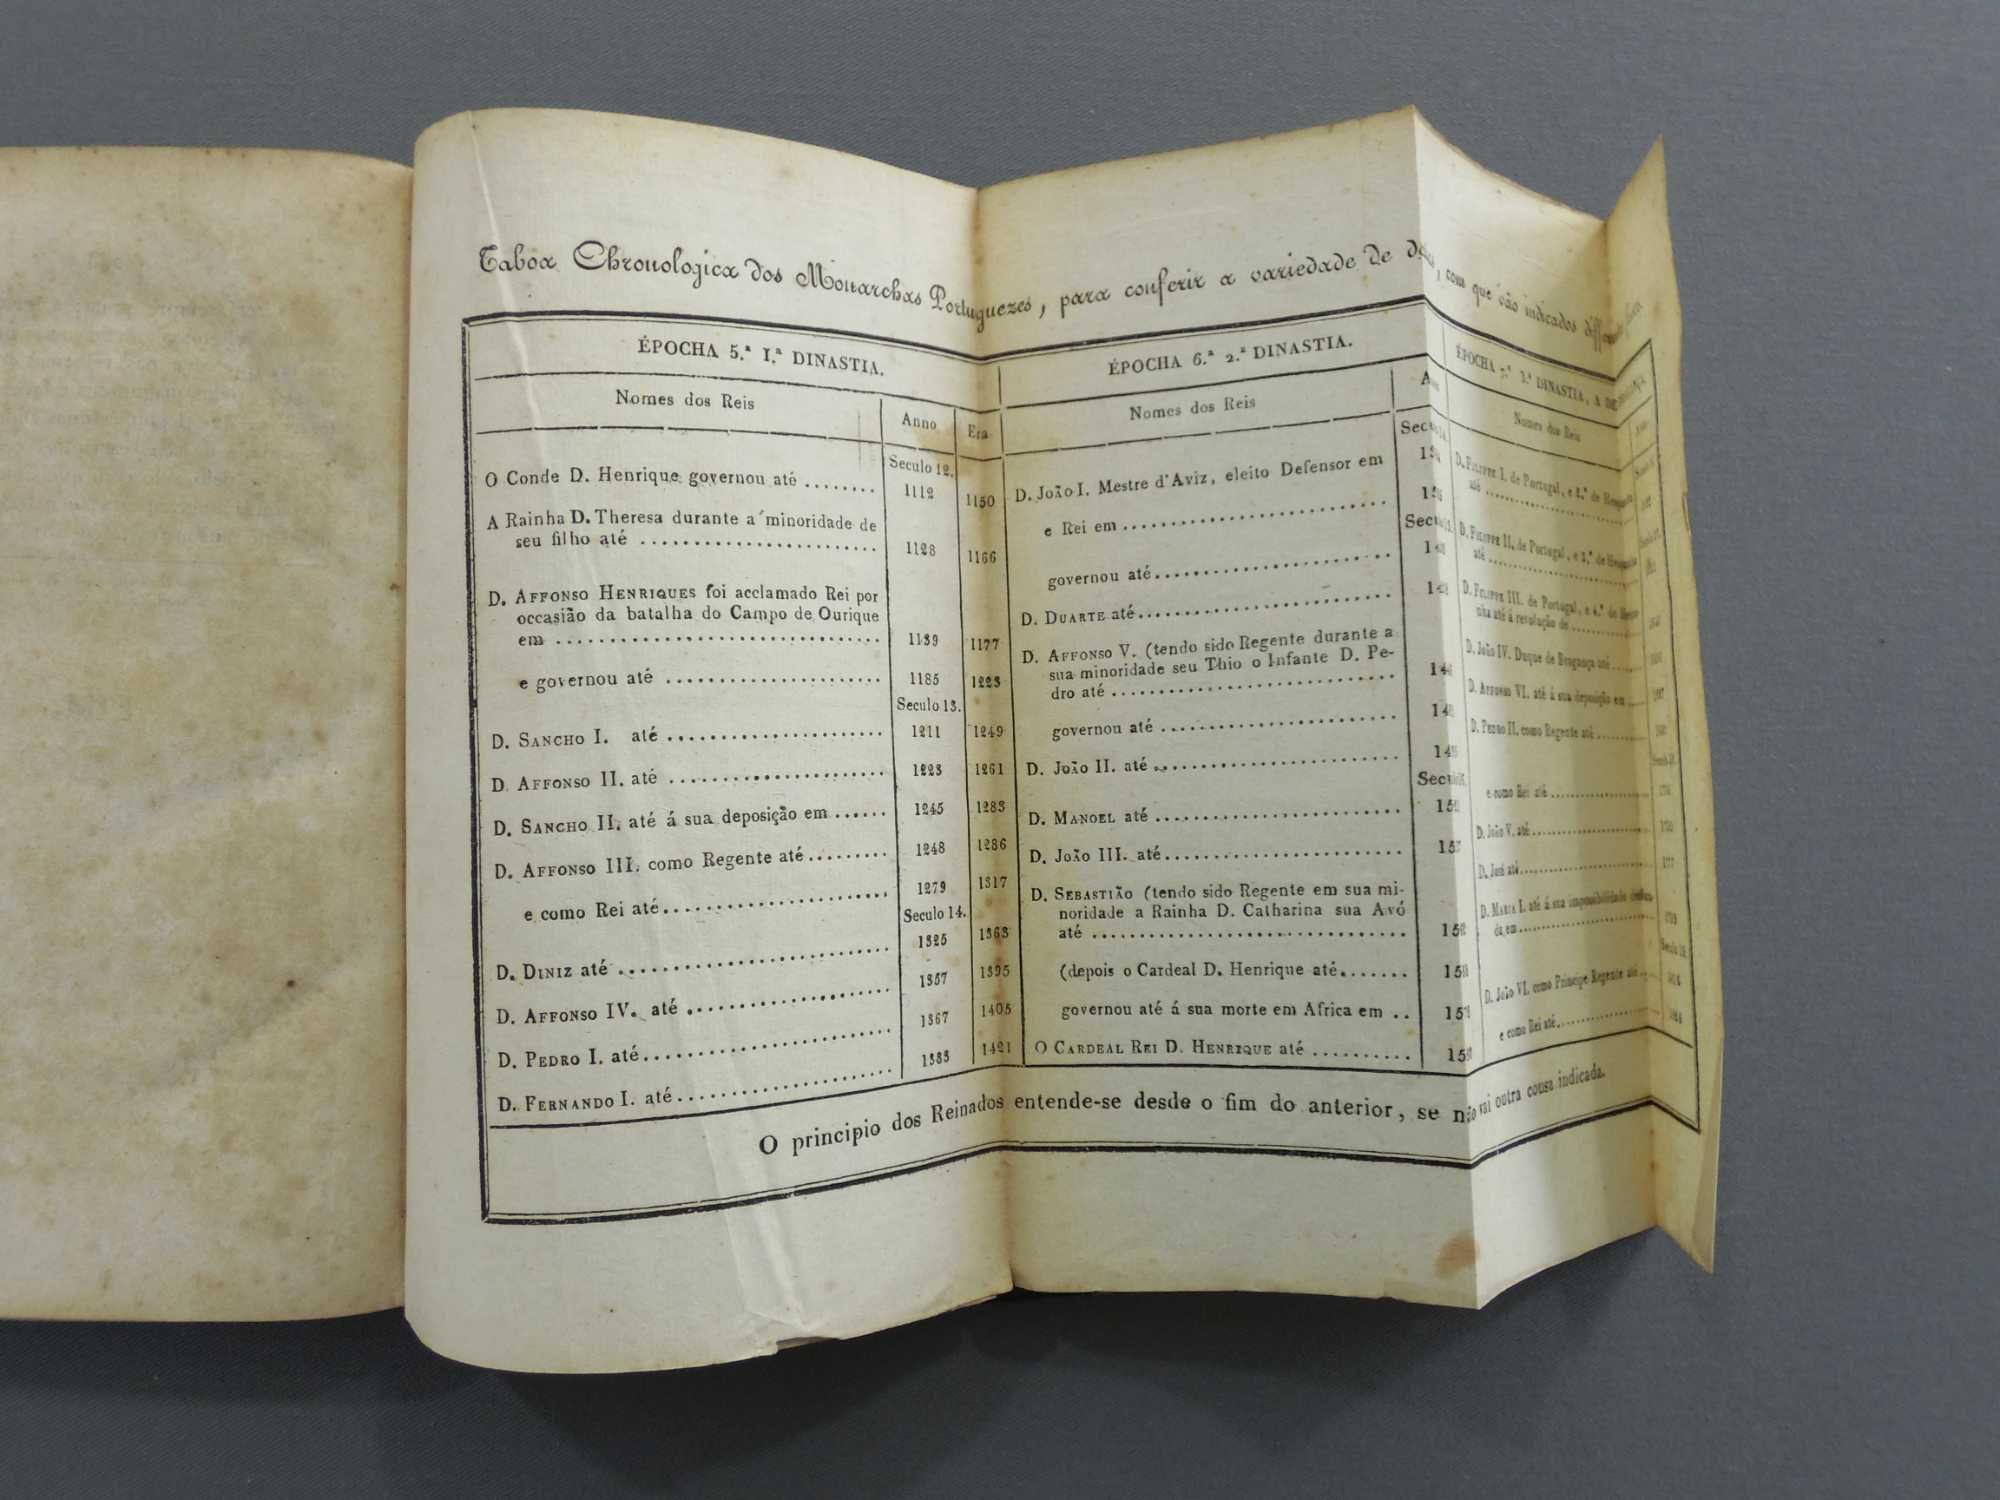 Taboa Chronologica dos Monarchas Portuguezes, para conferir a variedade de com que vão indicados
ÉPOCHA 5.ª I.ª DINASTIA.
Nomes dos Reis
Anno
Era
Seculo 12.
O Conde D. Henrique governou até ........ 1112 1150
A Rainha D. Theresa durante a minoridade de
seu filho até ........................ 1128 1166
D. AFFONSO HENRIQUES foi acclamado Rei por
occasião da batalha do Campo de Ourique
em ................................. 1139 1177
e governou até ...................... 1185 1223
Seculo 13.
D. SANCHO I. até ...................... 1211 1249
D. AFFONSO II. até ...................... 1223 1261
D. SANCHO II. até á sua deposição em ...... 1245 1283
D. AFFONSO III. como Regente até......... 1248 1286
e como Rei até....................... 1279 1317
Seculo 14.
D. DINIZ até ........................... 1325 1363
D. AFFONSO IV. até ..................... 1357 1395
D. PEDRO I. até......................... 1367 1405
D. FERNANDO I. até...................... 1383 1421
ÉPOCHA 6.ª 2.ª DINASTIA.
Nomes dos Reis
D. João I. Mestre d'Aviz, eleito Defensor em
e Rei em ...........................
governou até........................
D. DUARTE até..........................
D. AFFONSO V. (tendo sido Regente durante a
sua minoridade seu Thio o Infante D. Pe-
dro até .............................
governou até ........................
D. João II. até .........................
D. MANOEL até .........................
D. João III. até.........................
D. SEBASTIÃO (tendo sido Regente em sua mi-
noridade a Rainha D. Catharina sua Avó
até .................................
(depois o Cardeal D. Henrique até.......
governou até á sua morte em Africa em ..
O CARDEAL REI D. HENRIQUE até ..........
ÉPOCHA 7.ª 3.ª DINASTIA, A DE
Nomes dos Reis
D. FILIPPE I. de Portugal, e 2.º de
até ....................
D. FILIPPE II. de Portugal, e 3.º de
até ....................
D. FILIPPE III. de Portugal, e 4.º de
nha até á revolução de ..........
D. João IV. Duque de Bragança até ......
D. AFFONSO VI. até á sua deposição em ....
D. PEDRO II. como Regente até ..........
e como Rei até ....................
D. João V. até ........................
D. José até ........................
D. MARIA I. até á sua impossibilidade
da em ........................
D. João VI. como Principe Regente até ...
e como Rei até ....................
O principio dos Reinados entende-se desde o fim do anterior, se não vai outra cousa indicada.